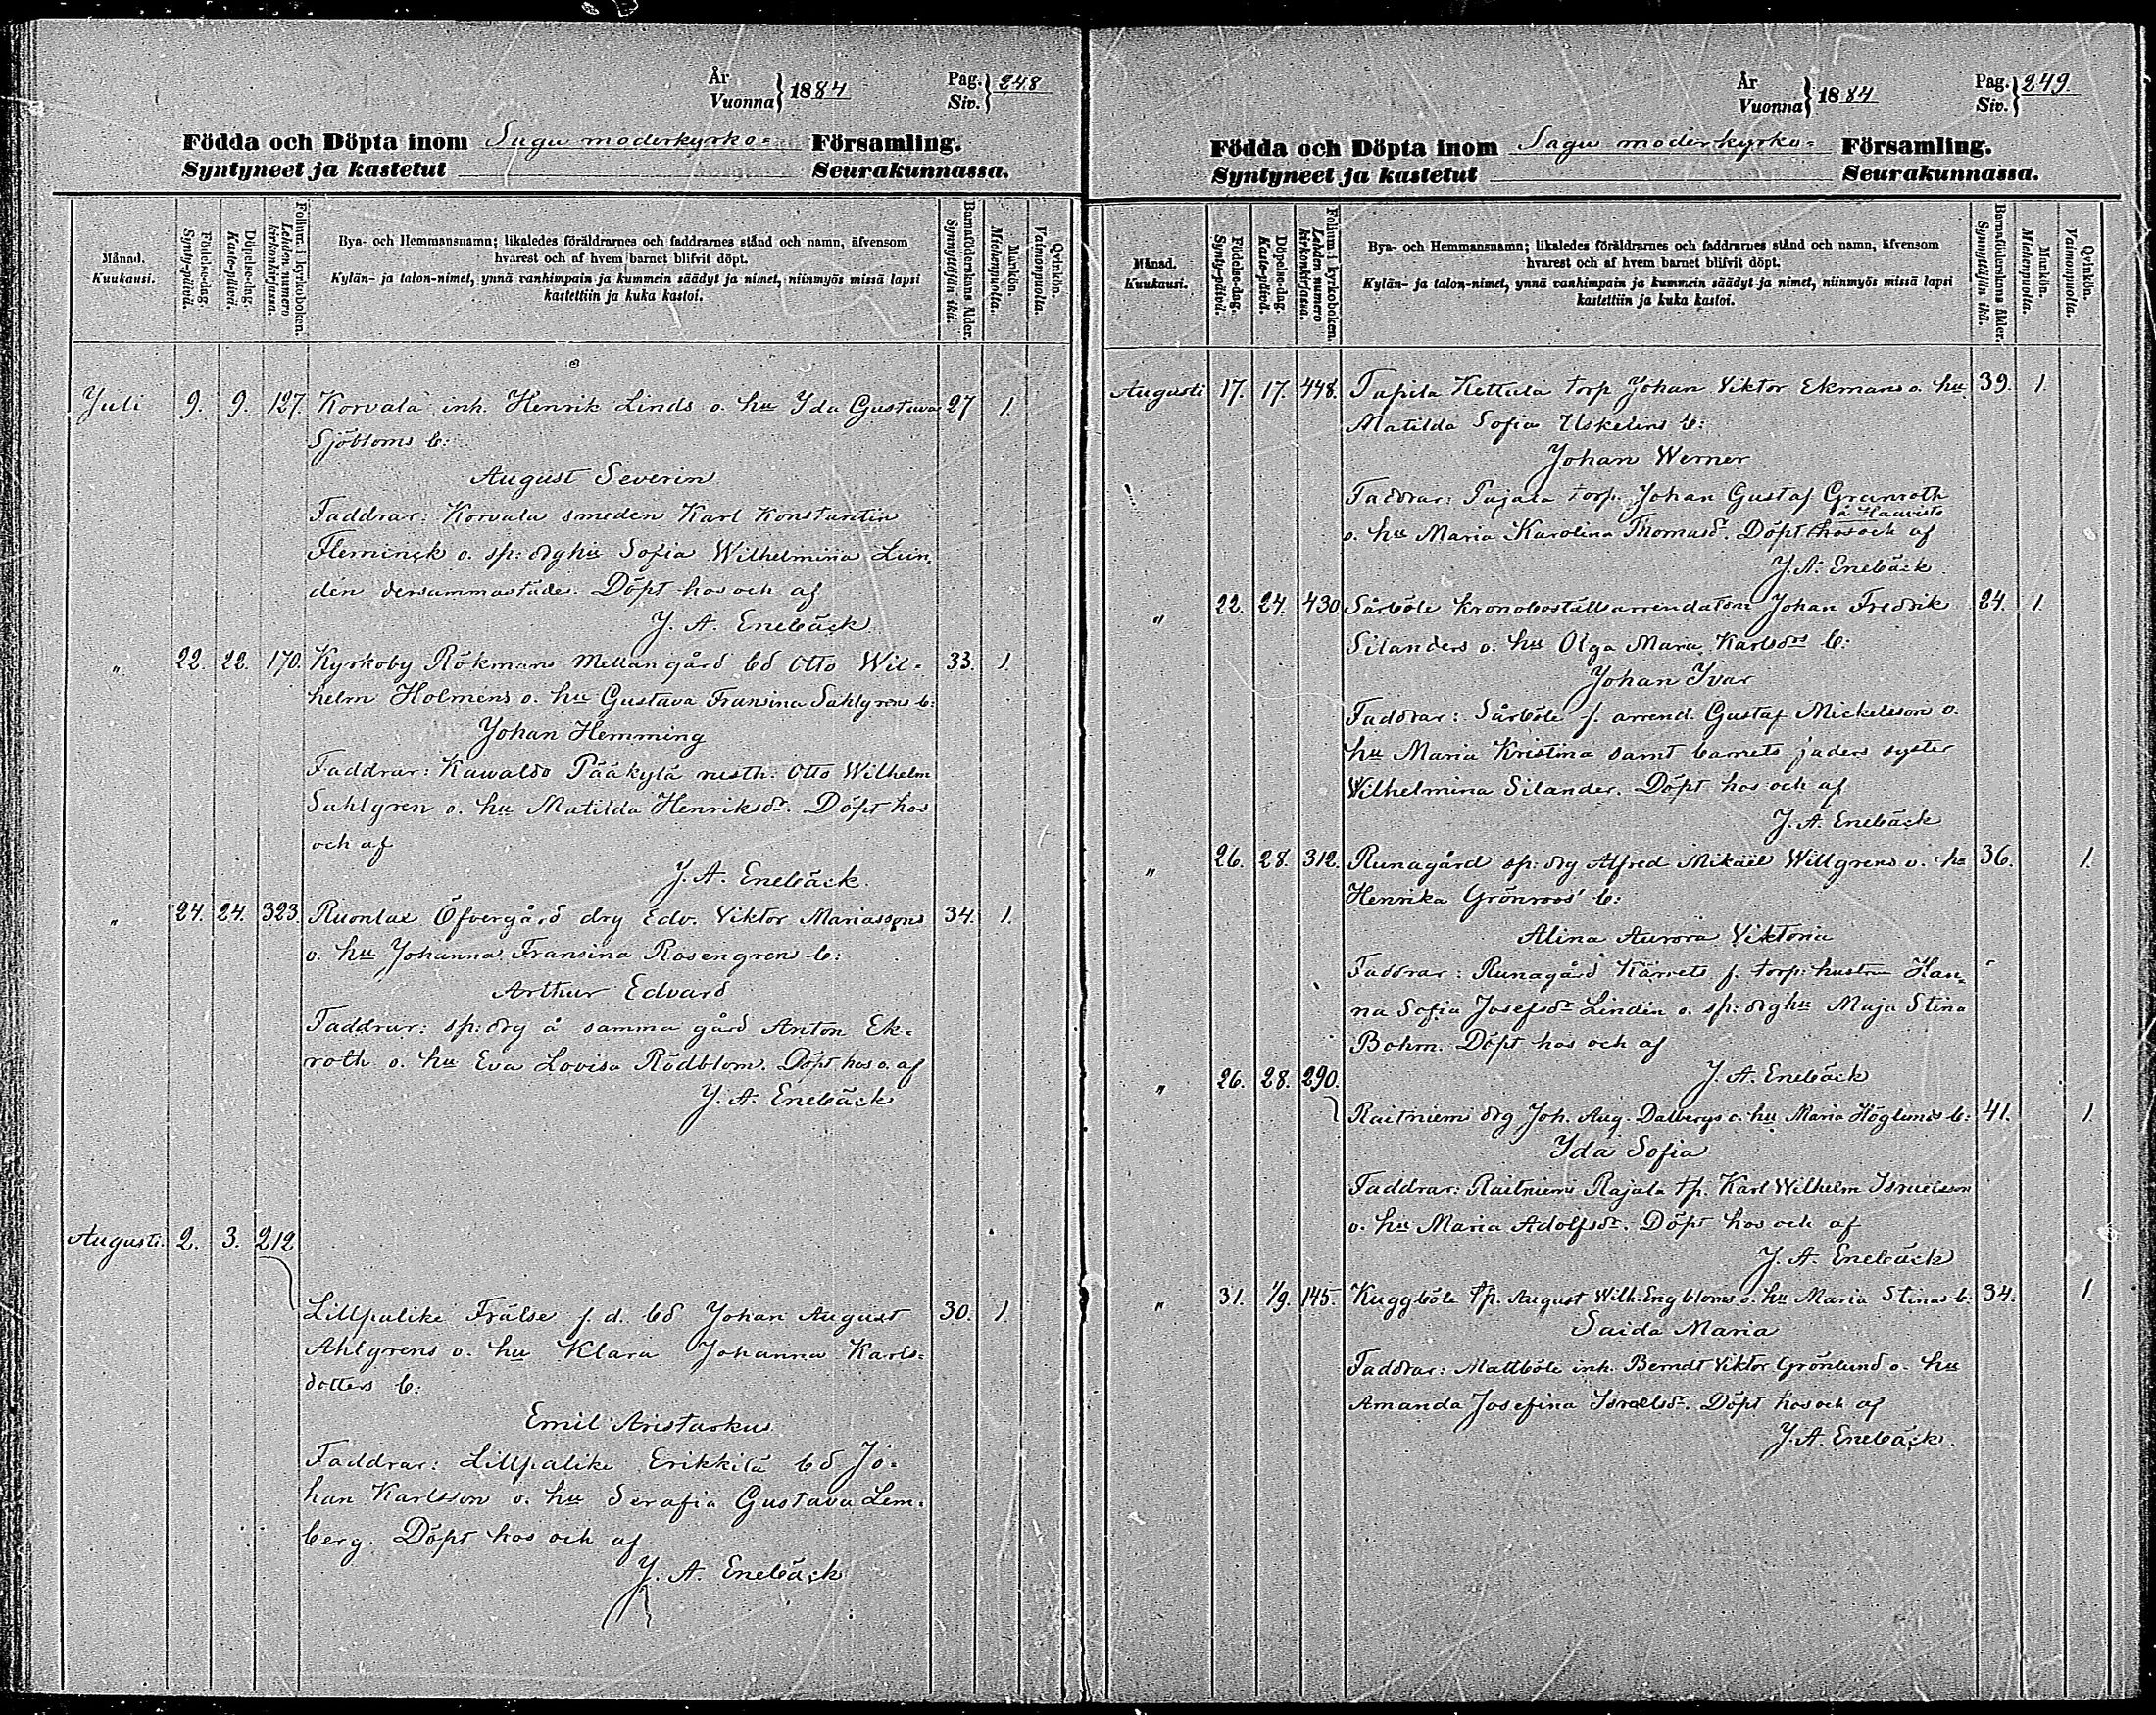 År
Vuonna } 1884
Pag.
Siv. } 248
Födda och Döpta inom Sagu moderkyrko= Församling.
Syntyneet ja kastetut Seurakunnassa.
Månad.
Kuukausi.
Födelse-dag.
Synty-päivä.
Döpelse-dag.
Kaste-päivä.
Folium i kyrkoboken.
Lehden numero kirkonkirjassa.
Bya- och Hemmansnamn; likaledes föräldrarnes och faddrarnes stånd och namn, äfvensom
hvarest och af hvem barnet blifvit döpt.
Kylän- ja talon-nimet, ynnä vanhimpain ja kummein säädyt ja nimet, niinmyös missä lapsi
kastettiin ja kuka kastoi.
Barnaföderskans ålder.
Synnyttäjän ikä.
Mankön.
Miehenpuolta.
Qvinkön.
Vaimonpuolta.
Juli 9. 9. 127. Korvala inh. Henrik Linds o. hu Ida Gustava 27 1.
Sjöbloms b:
August Severin
Faddrar: Korvala smeden Karl Konstantin
Fleminck o. sp: drghu Sofia Wilhelmina Lin,
dén dersammastäde. Döpt hos och af
J. A. Enebäck
" 22. 22. 170. Kyrkoby Rökmans Mellangård bd Otto Wil= 33. 1.
helm Holméns o. hu Gustava Fransina Sahlgrens b:
Johan Hemming
Faddrar: Kawaldo Pääkylä rusth. Otto Wilhelm
Sahlgren o. hu Matilda Henriksdr. Döpt hos
och af
J. A. Enebäck.
" 24. 24. 323. Ruonlax Öfvergård drg Edv. Viktor Mariassons 34. 1.
o. hu Johanna Fransina Rosengrens b:
Arthur Edvard
Faddrar: sp: drg å samma gård Anton Ek=
roth o. hu Eva Lovisa Rödblom. Döpt hos o. af
J. A. Enebäck
Augusti. 2. 3. 212
Lillpalike Frälse f. d. bd Johan August 30. 1.
Ahlgrens o. hu Klara Johanna Karls=
dotters b:
Emil Aristarkus
Faddrar: Lillpalike Erikkilä bd Jo=
han Karlsson o. hu Serafia Gustava Lem=
berg. Döpt hos och af
J. A. Enebäck
År
Vuonna } 1884
Pag.
Siv. } 249.
Födda och Döpta inom Sagu moderkyrko= Församling.
Syntyneet ja kastetut Seurakunnassa.
Månad.
Kuukausi.
Födelse-dag.
Synty-päivä.
Döpelse-dag.
Kaste-päivä.
Folium i kyrkoboken.
Lehden numero kirkonkirjassa.
Bya- och Hemmansnamn; likaledes föräldrarnes och faddrarnes stånd och namn, äfvensom
hvarest och af hvem barnet blifvit döpt.
Kylän- ja talon-nimet, ynnä vanhimpain ja kummein säädyt ja nimet, niinmyös missä lapsi
kastettiin ja kuka kastoi.
Barnaföderskans ålder.
Synnyttäjän ikä.
Mankön.
Miehenpuolta.
Qvinkön.
Vaimonpuolta.
Augusti 17. 17. 448. Tapila Kettula torp Johan Viktor Ekmans o. hu 39. 1.
Matilda Sofia Uskelins b:
Johan Werner
Faddrar: Pajala torp. Johan Gustaf Granroth
å Haavisto
o. hu Maria Karolina Thomasdr. Döpt hos och af
J. A. Enebäck
" 22. 24. 430. Särböle kronoboställsarrendatorn Johan Fredrik 24. 1.
Silanders o. hu Olga Maria Karlsdrs b:
Johan Ivar
Faddrar: Särböle f. arrend. Gustaf Mickelsson o.
hu Maria Kristina samt barnets faders syster
Wilhelmina Silander. Döpt hos och af
J. A. Enebäck
" 26. 28. 312. Runagård sp: drg Alfred Mikael Willgrens o. hu 36. 1.
Henrika Grönroos' b:
Alina Aurora Viktoria
Faddrar: Runagård Kärrets f. torp: hustru Han,
na Sofia Josefsdr Lindén o. sp: drghu Maja Stina
Bohm. Döpt hos och af
J. A. Enebäck
" 26. 28. 290.
Raitniemi drg Joh. Aug. Dalbergs o. hu Maria Höglunds b: 41. 1.
Ida Sofia
Faddrar: Raitniemi Rajala tp. Karl Wilhelm Israelsson
o. hu Maria Adolfsdr. Döpt hos och af
J. A. Enebäck
" 31. 1/9. 145. Kuggböle tp. August Wilh. Engbloms o. hu Maria Stinas b. 34. 1.
Saida Maria
Faddrar: Mattböle inh. Berndt Viktor Grönlund o. hu
Amanda Josefina Israelsdr. Döpt hos och af
J. A. Enebäck.